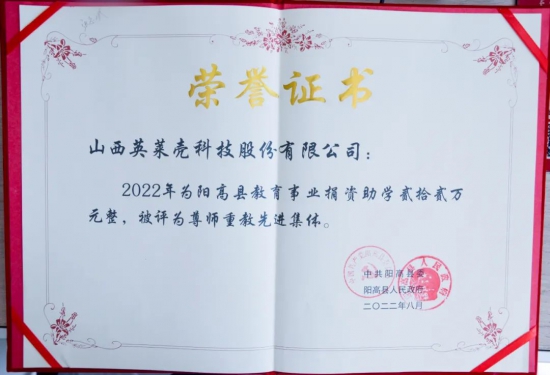 荣誉证书
山西英莱壳科技股份有限公司：
2022年为阳高县教育事业捐资助学贰拾贰万
元整，被评为尊师重教先进集体。
中共阳高县委
阳高县人民政府
二〇二二年八月